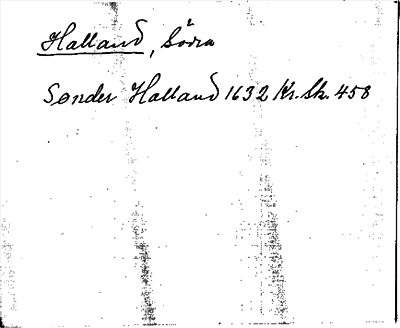 Halland, Södra
Sønder Halland 1632 Kr. Sk. 458